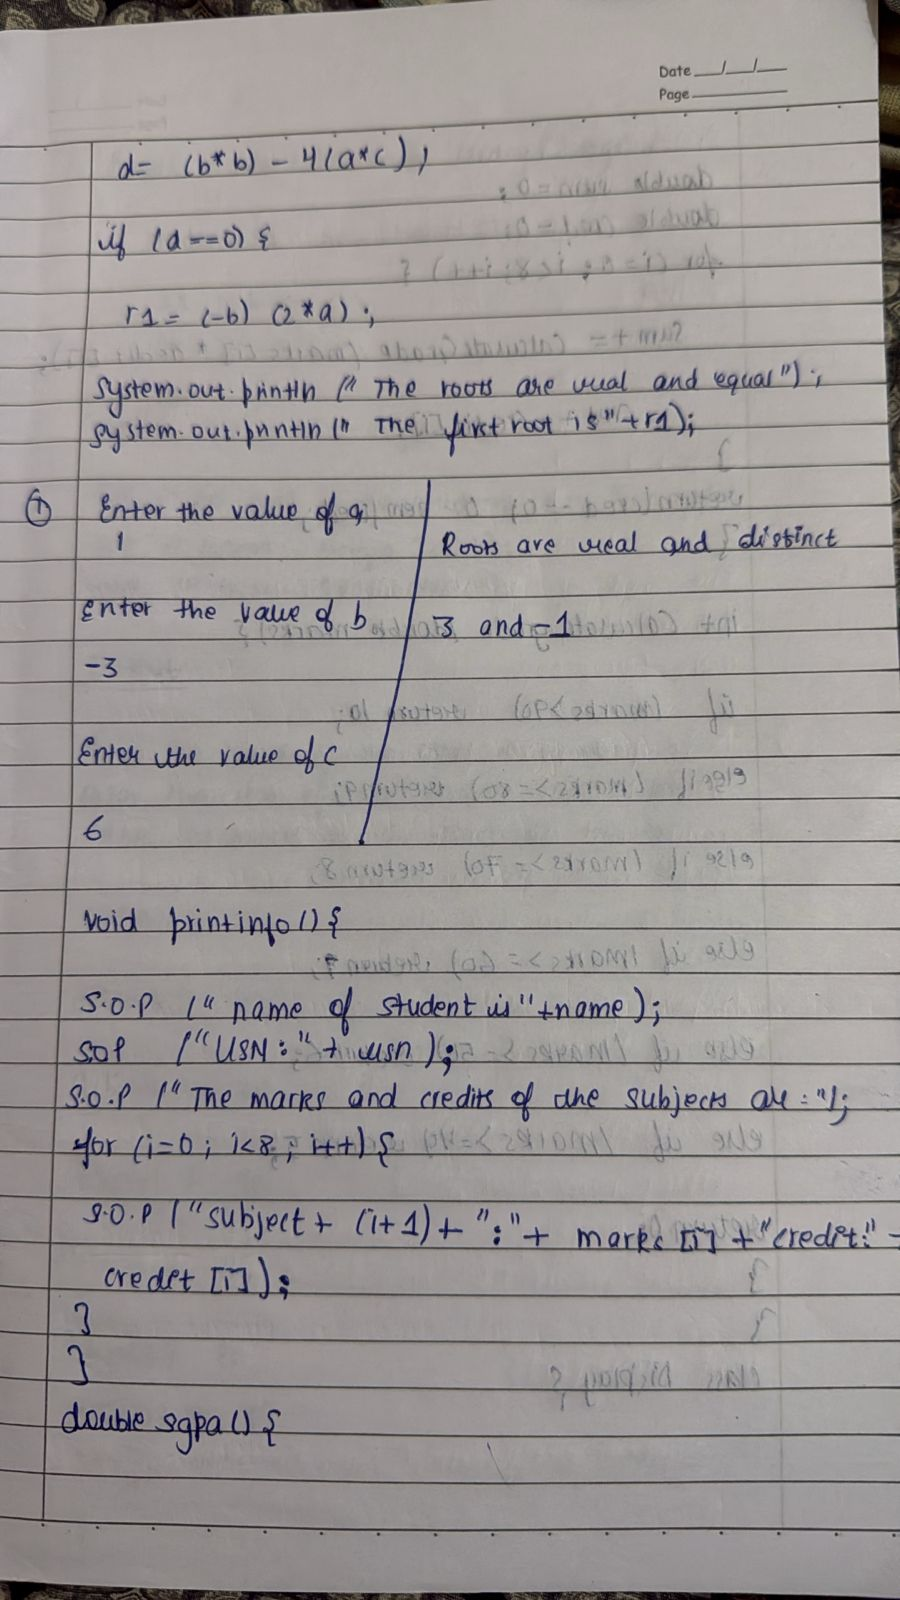 Date __/__/__
Page
d= (b*b) - 4(a*c);
if (d==0) {
r1= (-b) (2*a);
System.out.println (" The roots are real and equal");
System.out.println (" The first root is"+r1);
① Enter the value of a,
1
Enter the value of b
-3
Enter the value of c
6
Roots are real and distinct
3 and -1
void printinfo () {
S.O.P (" name of student is" +name);
SOP ("USN:" + usn );
S.O.P (" The marks and credits of the subjects are :");
for (i=0 ; i<8 ; i++) {
S.O.P ("subject + (i+1) + ":" + marks [i] + "credit:" -
credet [i] );
}
}
double sgpa () {